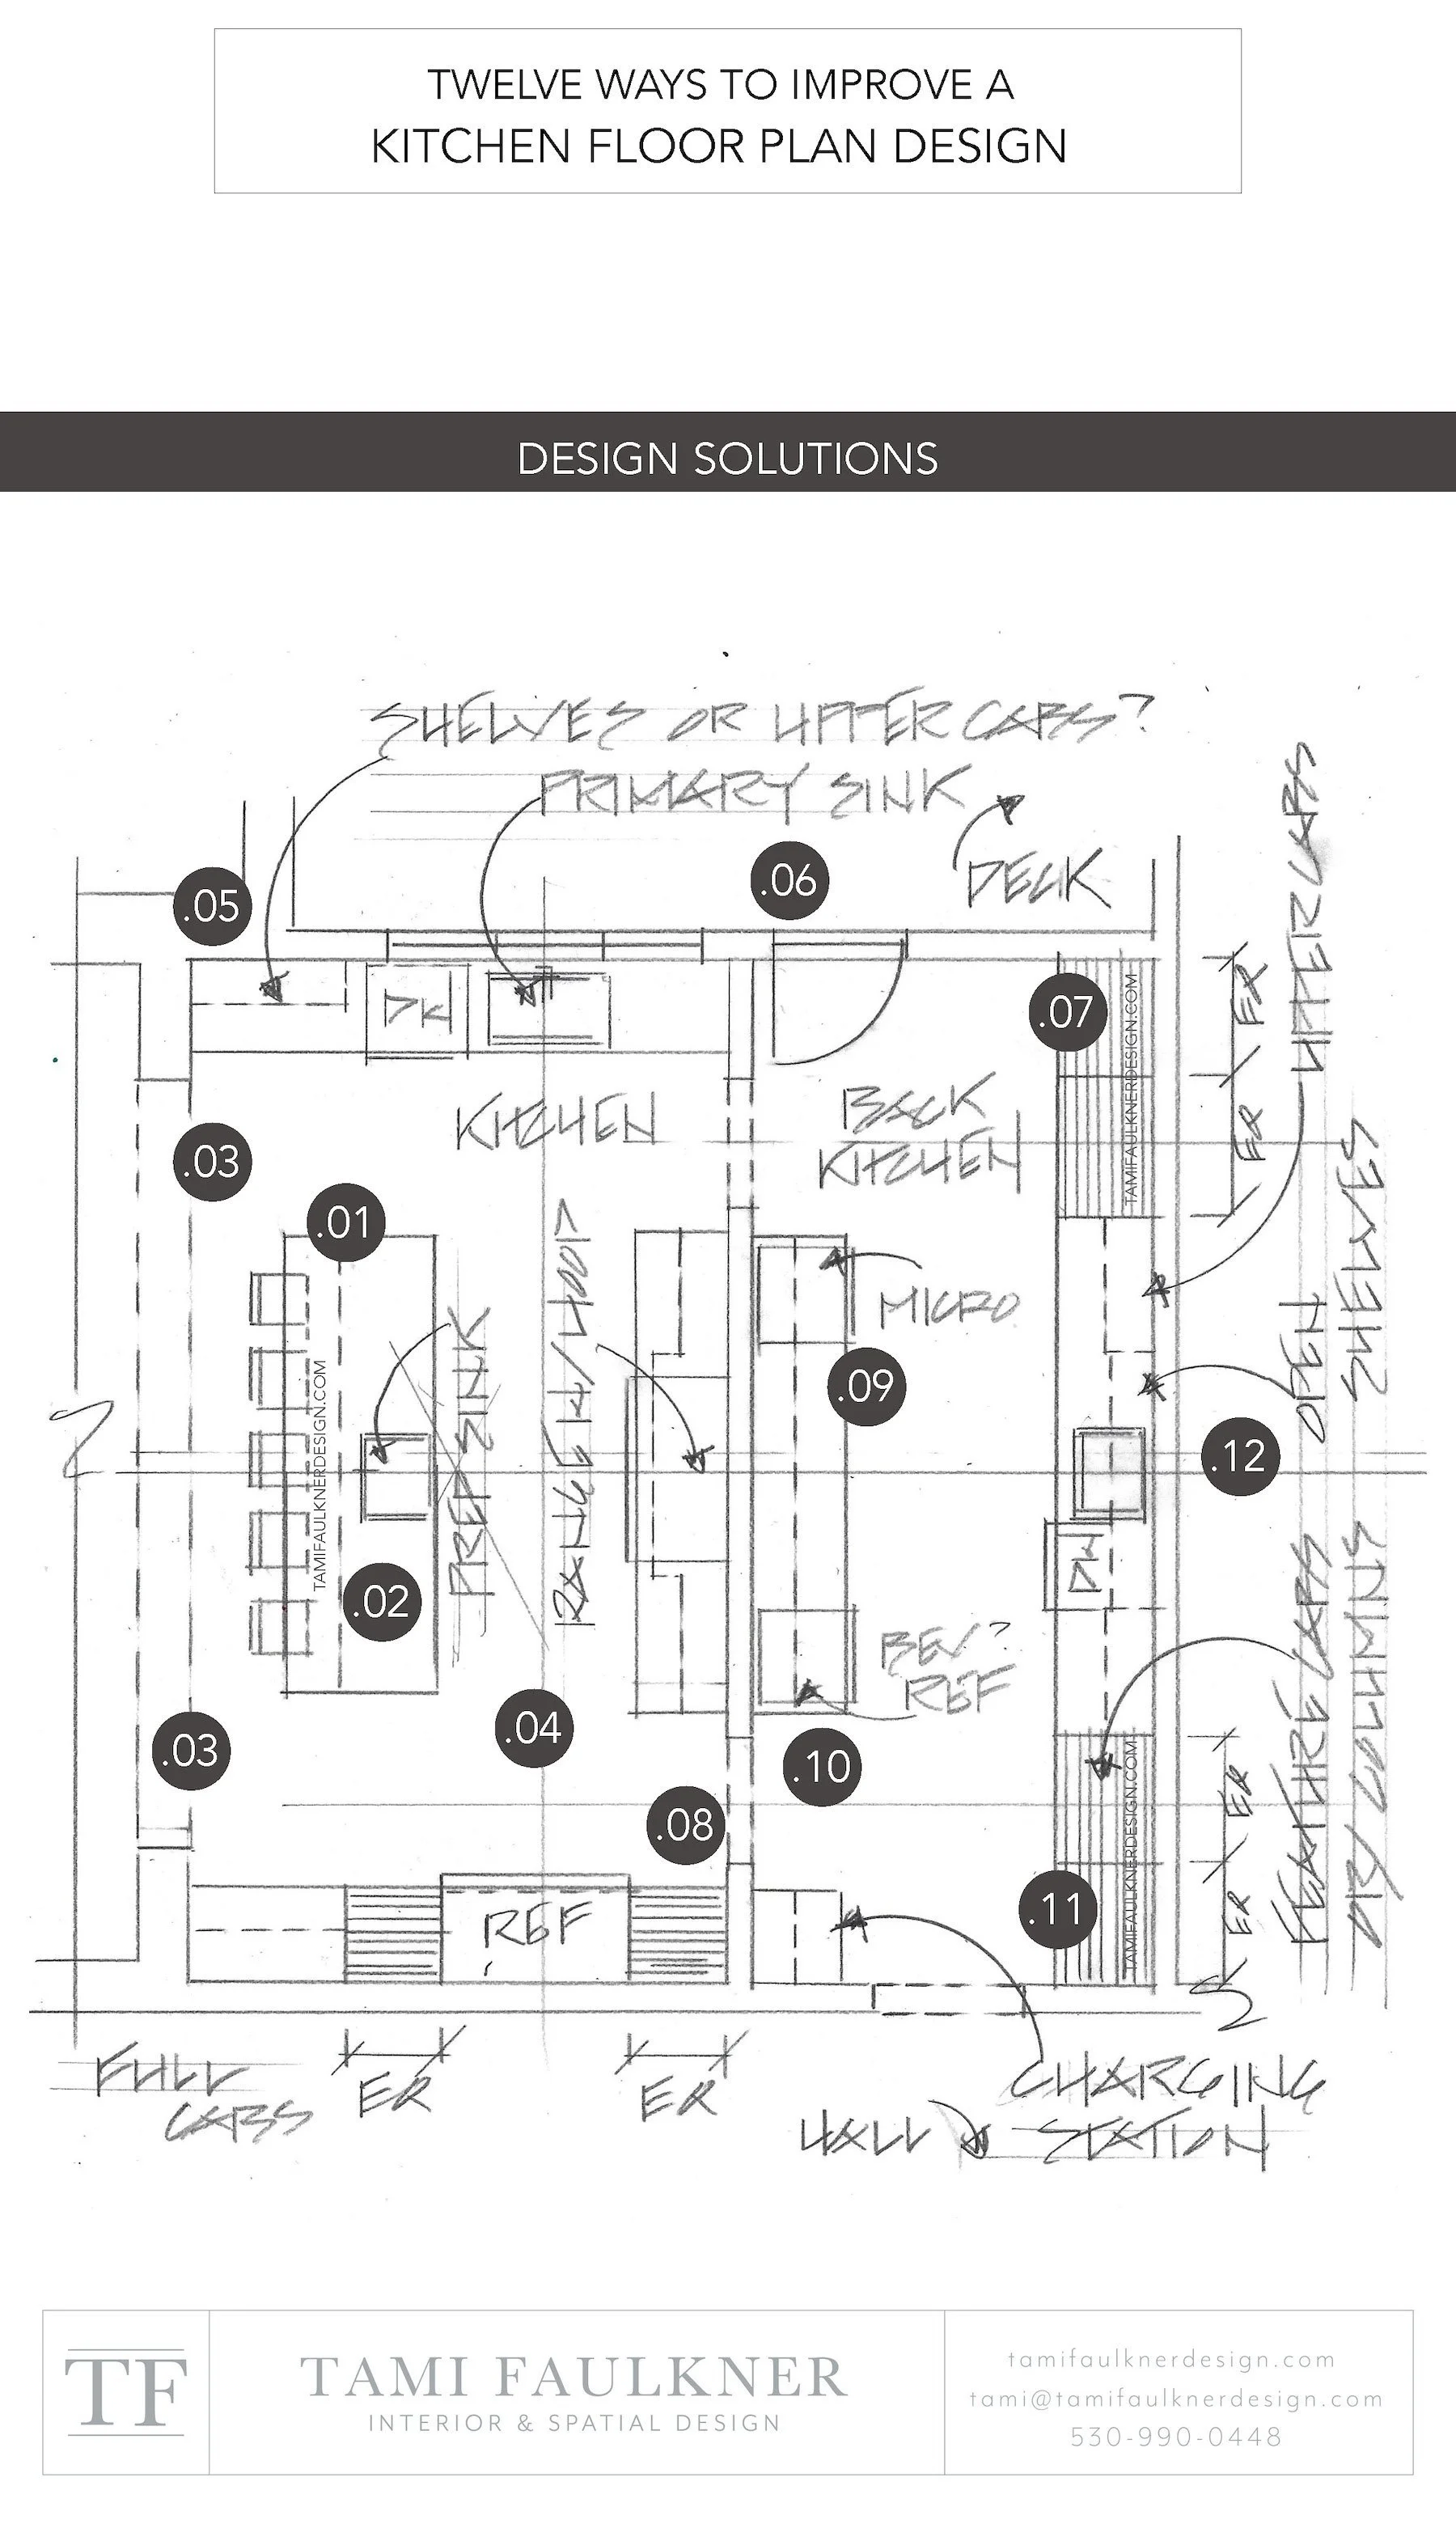 TWELVE WAYS TO IMPROVE A
KITCHEN FLOOR PLAN DESIGN
DESIGN SOLUTIONS
SHELVES OR UPPER CABS?
PRIMARY SINK
DECK
UPPER CABS
.05
.06
DW
.07
TAMIFAULKNERDESIGN.COM
ER
ER
KITCHEN
BACK
KITCHEN
.03
.01
MICRO
OPEN SHELVES
.09
TAMIFAULKNERDESIGN.COM
PREP SINK
RANGE W/HOOD
.12
DW
.02
BEV?
REF
FEATURE CABS
.03
.04
.10
.08
TAMIFAULKNERDESIGN.COM
ER
ER
.11
REF
FULL
CABS
ER
ER
CHARGING
STATION
HALL
TF
TAMI FAULKNER
INTERIOR & SPATIAL DESIGN
tamifaulknerdesign.com
tami@tamifaulknerdesign.com
530-990-0448